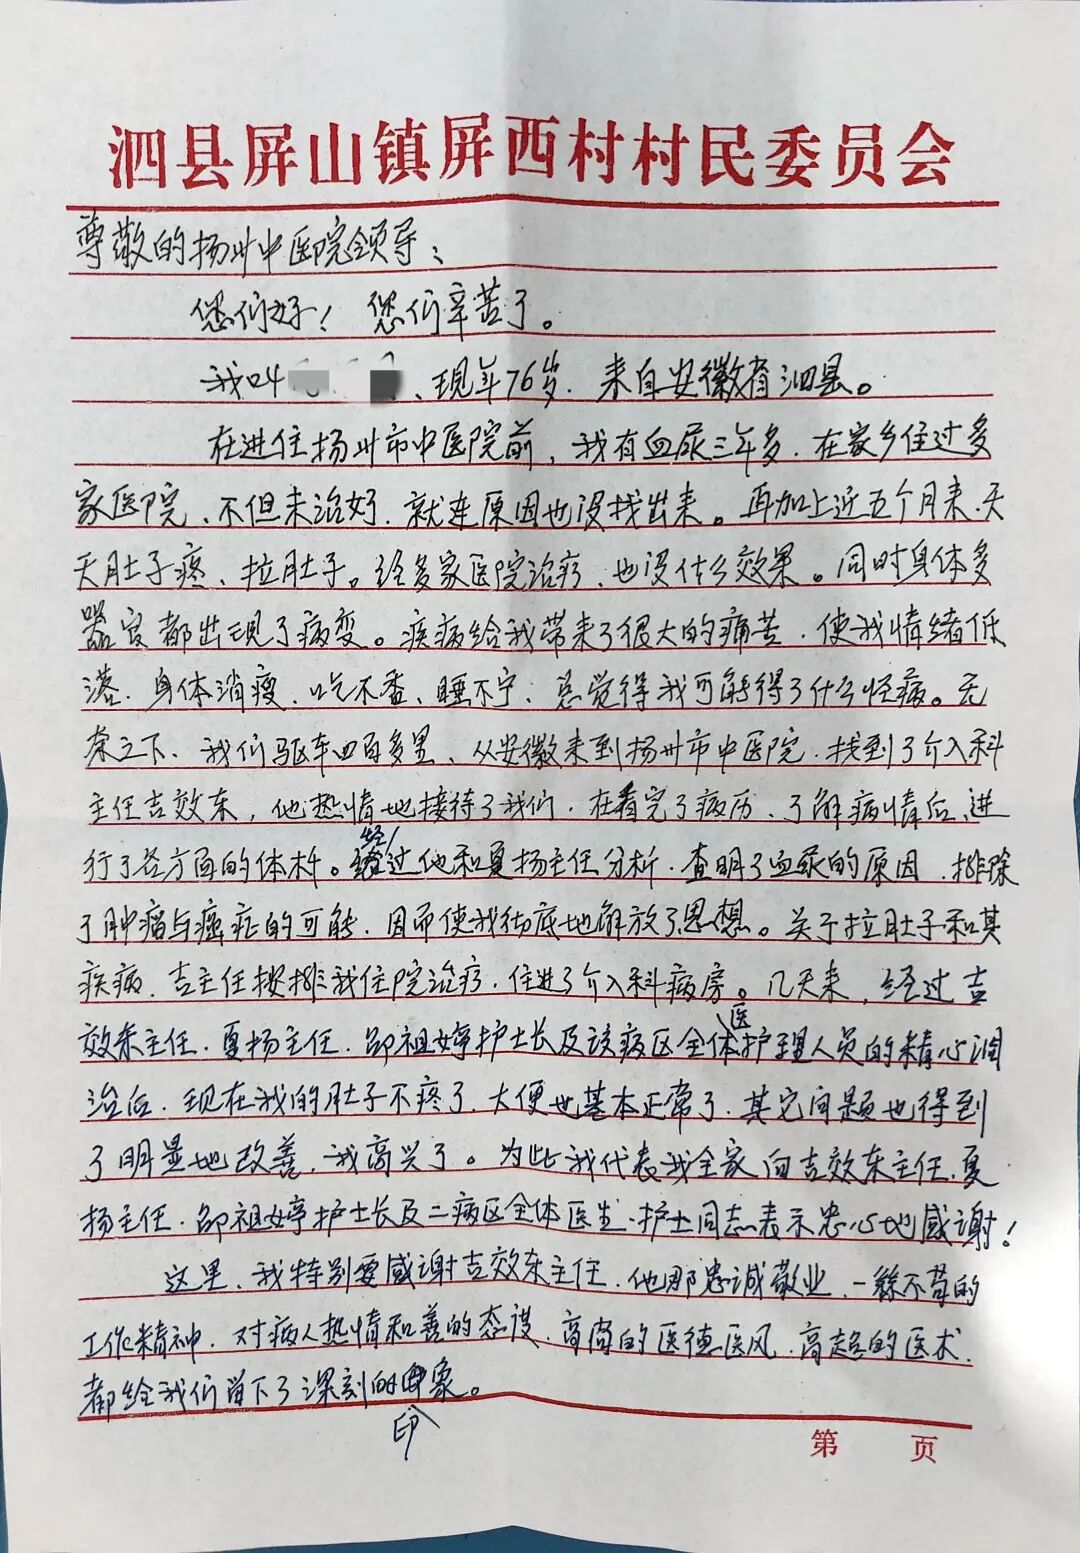 泗县屏山镇屏西村村民委员会
尊敬的扬州中医院领导：
您们好！您们辛苦了。
我叫、现年76岁．来自安徽省泗县。
在进住扬州市中医院前，我有血尿三年多．在家乡住过多
家医院、不但未治好．就连原因也没找出来。再加上近五个月来、天
天肚子疼、拉肚子。经多家医院治疗、也没什么效果。同时身体多
器官都出现了病变。疾病给我带来了很大的痛苦．使我情绪低
落．身体消瘦．吃不香、睡不宁．总觉得我可能得了什么怪病。无
奈之下、我们驱车四百多里、从安徽来到扬州市中医院．找到了介入科
主任吉效东，他热情地接待了我们．在看完了病历、了解病情后、进
行了各方面的体检。经过他和夏扬主任分析．查明了血尿的原因．排除
了肿瘤与癌症的可能．因而使我彻底地解放了思想。关于拉肚子和其
疾病．吉主任安排我住院治疗．住进了介入科病房。几天来，经过吉
效东主任．夏扬主任．邵祖婷护士长及该病区全体医护理人员的精心调
治后．现在我的肚子不疼了．大便也基本正常了．其它问题也得到
了明显地改善．我高兴了。为此我代表我全家向吉效东主任．夏
扬主任．邵祖婷护士长及二病区全体医生．护士同志表示忠心地感谢！
这里、我特别要感谢吉效东主任．他那忠诚敬业．一丝不苟的
工作精神．对病人热情和善的态度．高尚的医德医风．高超的医术．
都给我们留下了深刻的印象。
第 页